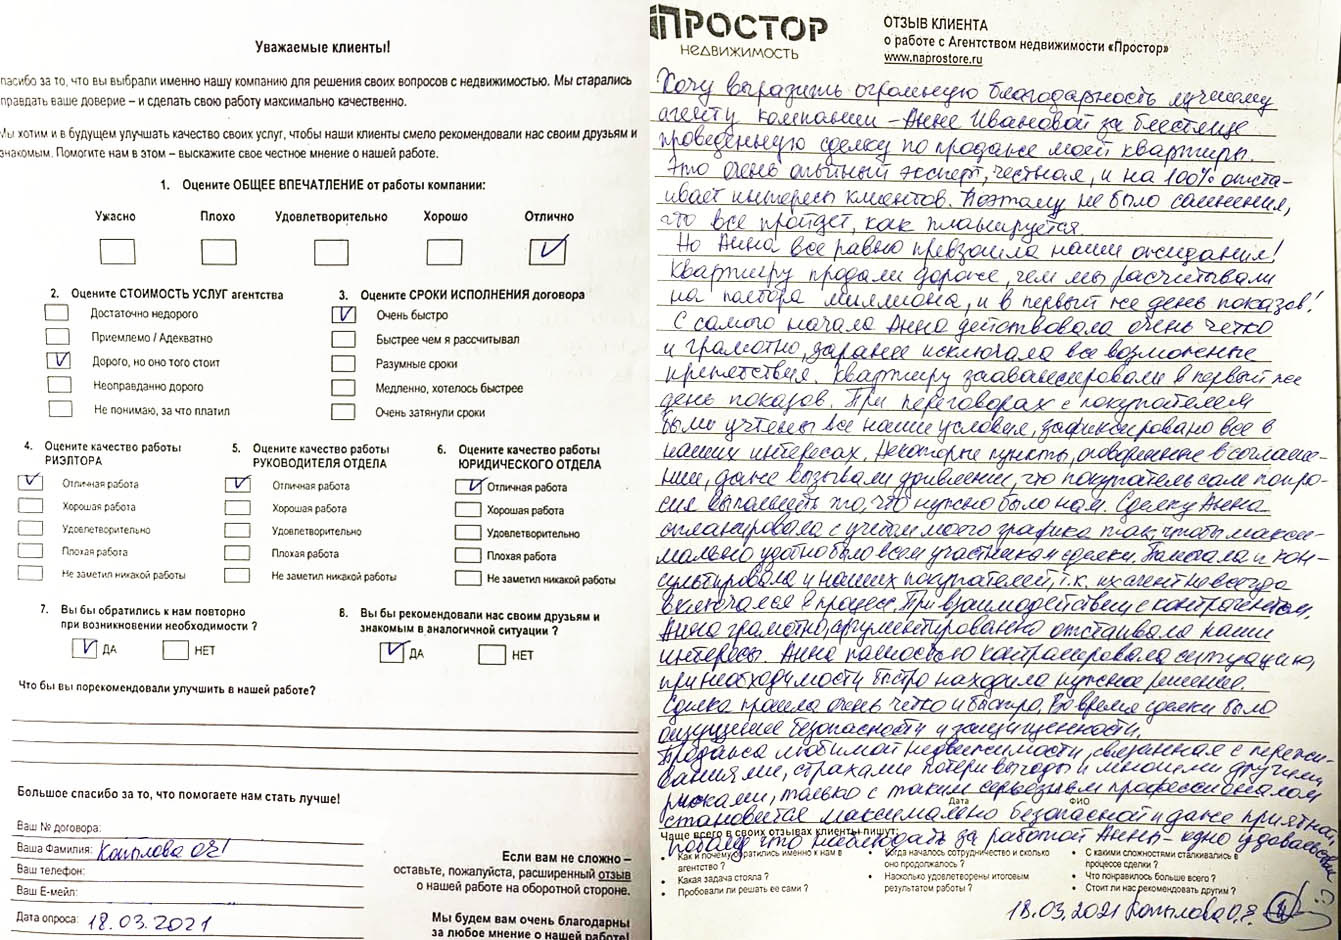 Уважаемые клиенты!
пасибо за то, что вы выбрали именно нашу компанию для решения своих вопросов с недвижимостью. Мы старались
правдать ваше доверие – и сделать свою работу максимально качественно.
Мы хотим и в будущем улучшать качество своих услуг, чтобы наши клиенты смело рекомендовали нас своим друзьям и
знакомым. Помогите нам в этом – выскажите свое честное мнение о нашей работе.
1. Оцените ОБЩЕЕ ВПЕЧАТЛЕНИЕ от работы компании:
Ужасно Плохо Удовлетворительно Хорошо Отлично
2. Оцените СТОИМОСТЬ УСЛУГ агентства
Достаточно недорого
Приемлемо / Адекватно
Дорого, но оно того стоит
Неоправданно дорого
Не понимаю, за что платил
3. Оцените СРОКИ ИСПОЛНЕНИЯ договора
Очень быстро
Быстрее чем я рассчитывал
Разумные сроки
Медленно, хотелось быстрее
Очень затянули сроки
4. Оцените качество работы
РИЭЛТОРА
Отличная работа
Хорошая работа
Удовлетворительно
Плохая работа
Не заметил никакой работы
5. Оцените качество работы
РУКОВОДИТЕЛЯ ОТДЕЛА
Отличная работа
Хорошая работа
Удовлетворительно
Плохая работа
Не заметил никакой работы
6. Оцените качество работы
ЮРИДИЧЕСКОГО ОТДЕЛА
Отличная работа
Хорошая работа
Удовлетворительно
Плохая работа
Не заметил никакой работы
7. Вы бы обратились к нам повторно
при возникновении необходимости ?
ДА НЕТ
8. Вы бы рекомендовали нас своим друзьям и
знакомым в аналогичной ситуации ?
ДА НЕТ
Что бы вы порекомендовали улучшить в нашей работе?
Большое спасибо за то, что помогаете нам стать лучше!
Ваш № договора:
Ваша Фамилия: Копылова ОЕ
Ваш телефон:
Ваш Е-мейл:
Дата опроса: 18.03.2021
Если вам не сложно –
оставьте, пожалуйста, расширенный отзыв
о нашей работе на оборотной стороне.
Мы будем вам очень благодарны
за любое мнение о нашей работе!
ПРОСТОР
НЕДВИЖИМОСТЬ
ОТЗЫВ КЛИЕНТА
о работе с Агентством недвижимости «Простор»
www.naprostore.ru
Хочу выразить огромную благодарность лучшему
агенту компании – Анне Ивановой за блестяще
проведенную сделку по продаже моей квартиры.
Это очень опытный эксперт, честная, и на 100% отста-
ивает интересы клиентов. Поэтому не было сомнения,
что все пройдет, как планируется.
Но Анна все равно превзошла наши ожидания!
Квартиру продали дороже, чем мы расчитывали
на полтора миллиона, и в первый же день показов!
С самого начала Анна действовала очень четко
и грамотно, заранее исключала все возможные
препятствия. Квартиру заавансировали в первый же
день показов. При переговорах с покупателем
были учтены все наши условия, зафиксировано все в
наших интересах. Некоторые пункты, оговоренные в соглаше-
нии, даже вызывали удивление, что покупатель сам попро-
сил выполнить то, что нужно было нам. Сделку Анна
спланировала с учетом моего графика так, чтобы макси-
мально удобно было всем участникам сделки. Помогала и кон-
сультировала и наших покупателей, т.к. их агент не всегда
включался в процесс. При взаимодействии с контрагентом,
Анна грамотно, аргументированно отстаивала наши
интересы. Анна полностью контролировала ситуацию,
при необходимости быстро находила нужное решение.
Сделка прошла очень четко и быстро. Во время сделки было
ощущение безопасности и защищенности.
Продажа любимой недвижимости, связанная с пережи-
ваниями, страхами потери выгоды и многими другими
рисками, только с таким серьезным профессионалом
Дата ФИО
становится максимально безопасной и даже приятной,
потому что наблюдать за работой Анны – одно удовольствие
Чаще всего в своих отзывах клиенты пишут:
• Как и почему обратились именно к нам в
агентство ?
• Какая задача стояла ?
• Пробовали ли решать ее сами ?
• Когда началось сотрудничество и сколько
оно продолжалось ?
• Насколько удовлетворены итоговым
результатом работы ?
• С какими сложностями сталкивались в
процессе сделки ?
• Что понравилось больше всего ?
• Стоит ли нас рекомендовать другим ?
18.03.2021 Копылова О.Е.